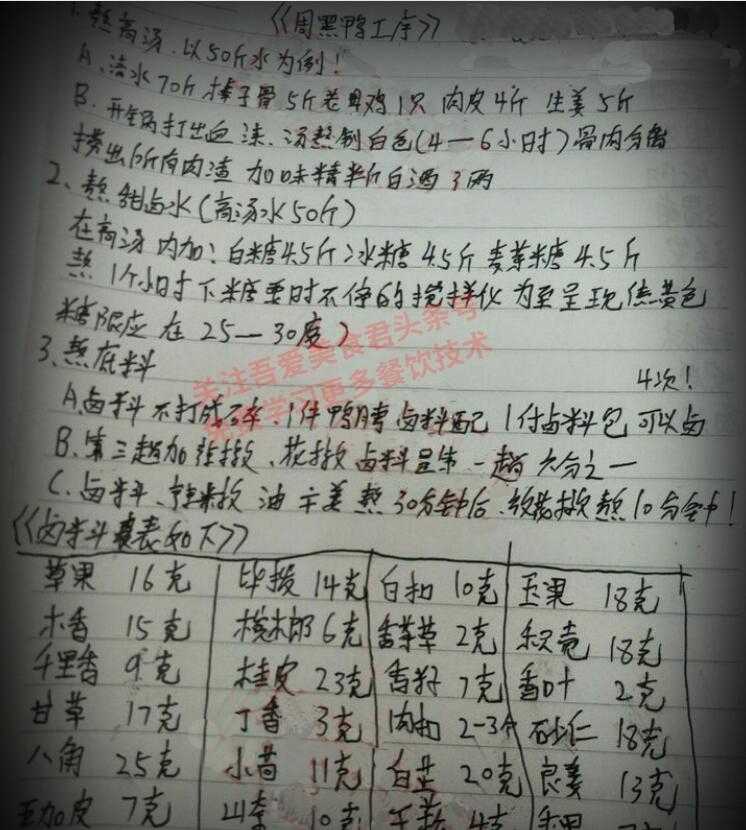 《《周黑鸭工序》》
1. 熬高汤. 以50斤水为例!
A、洁水70斤 棒子骨5斤 老母鸡1只 肉皮4斤 生姜5斤
B. 开锅打出血沫、汤熬制白色(4—6小时)骨肉分离
捞出所有肉渣 加味精半斤 白酒3两
2、熬甜卤水(高汤水50斤)
在高汤内加:白糖4.5斤 冰糖4.5斤 麦芽糖4.5斤
熬1个小时 下糖要时不停的搅拌 为至呈现焦黄色
糖限应在25—30度)
3、熬底料
A.卤料不打成碎、1件鸭脖卤料配1付卤料包可以卤4次!
B、第三趟加 花椒 卤料是第一趟六分之一
C、卤料、油 生姜熬30分钟后、放花椒熬10分钟!
《《卤料表如下》》
草果 16克 毕拨 14克 白扣 10克 玉果 18克
木香 15克 槟榔 6克 香茅草 2克 枳壳 18克
千里香 9克 桂皮 23克 香籽 7克 香叶 2克
甘草 17克 丁香 3克 肉扣 2-3个 砂仁 18克
八角 25克 小茴 11克 白芷 20克 良姜 13克
五加皮 7克 山柰 10克 4克
关注吾爱美食君头条号
学习更多餐饮技术